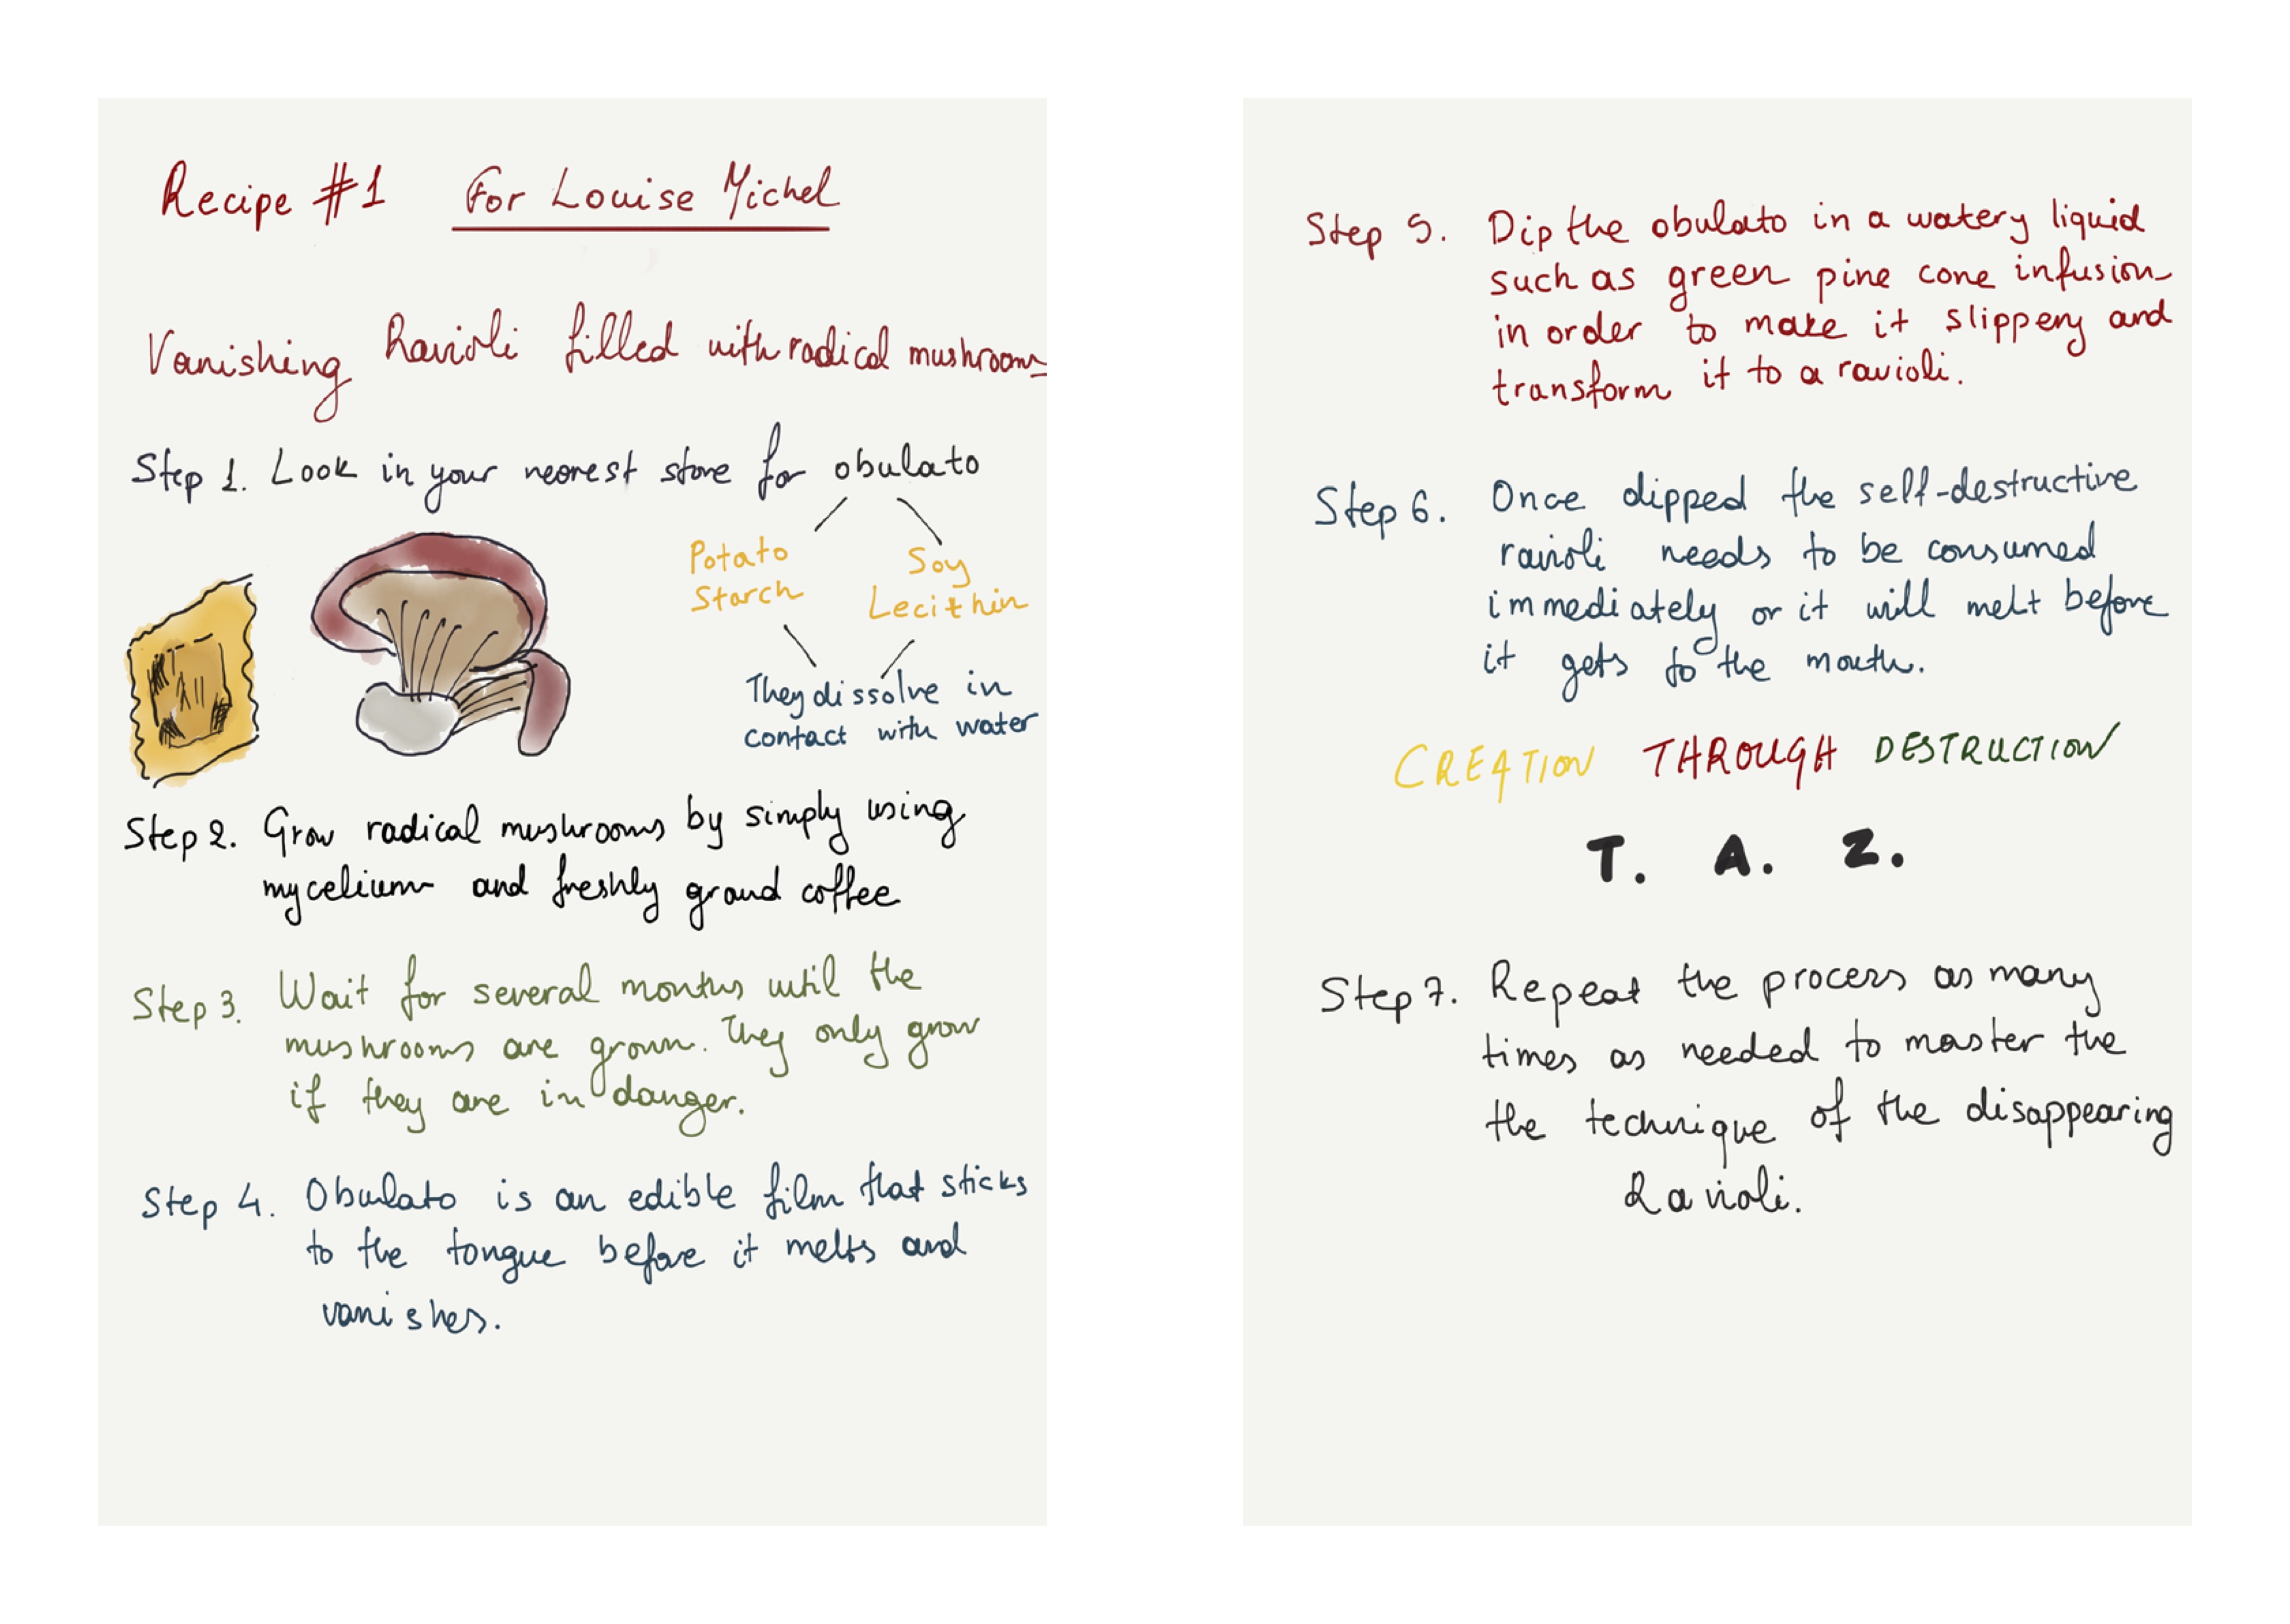 Recipe #1 For Louise Michel
Vanishing Ravioli filled with radical mushrooms
Step 1. Look in your nearest store for obulato
Potato
Starch
Soy
Lecithin
They dissolve in
contact with water
Step 2. Grow radical mushrooms by simply using
mycelium and freshly ground coffee
Step 3. Wait for several months until the
mushrooms are grown. They only grow
if they are in danger.
Step 4. Obulato is an edible film that sticks
to the tongue before it melts and
vanishes.
Step 5. Dip the obulato in a watery liquid
such as green pine cone infusion
in order to make it slippery and
transform it to a ravioli.
Step 6. Once dipped the self-destructive
ravioli needs to be consumed
immediately or it will melt before
it gets to the mouth.
CREATION THROUGH DESTRUCTION
T. A. Z.
Step 7. Repeat the process as many
times as needed to master the
the technique of the disappearing
Ravioli.